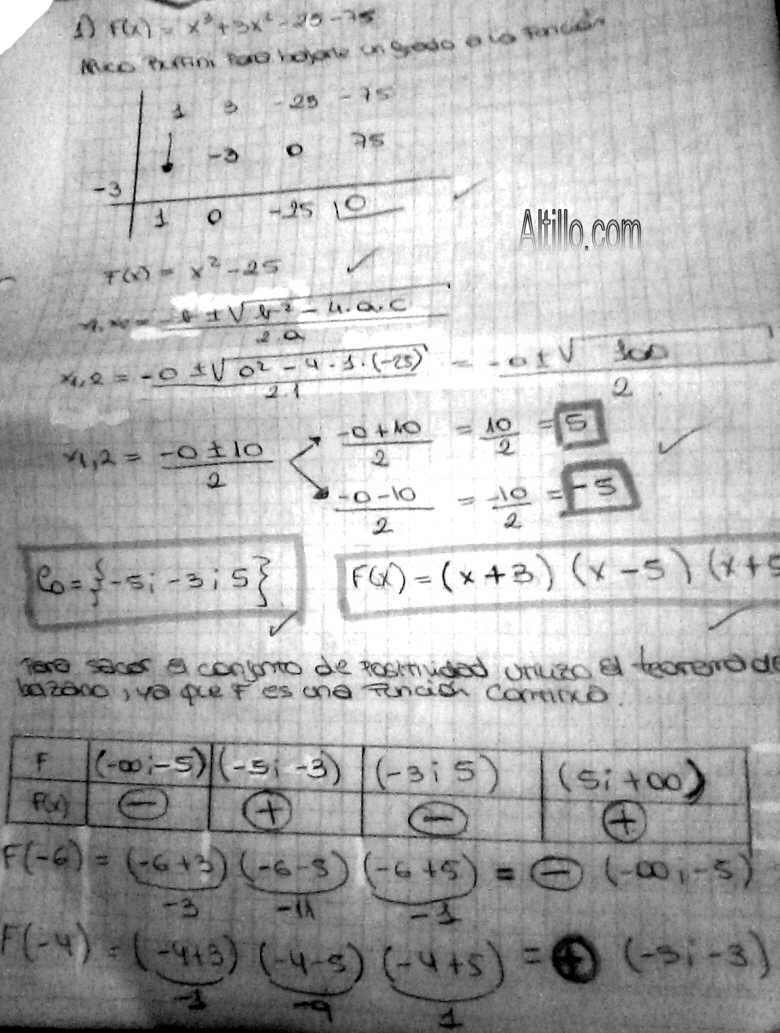 1) F(x) = x³ + 3x² - 25 - 75
Aplico Ruffini para bajarle un grado a la función
1 3 -25 -75
↓ -3 0 75
-3
1 0 -25 0
Altillo.com
F(x) = x² - 25
x1,x2 = -b ± √b² - 4.a.c / 2.a
x1,2 = -0 ± √0² - 4.1.(-25) / 2.1 = -0 ± √100 / 2
x1,2 = -0 ± 10 / 2
-0 + 10 / 2 = 10 / 2 = 5
-0 - 10 / 2 = -10 / 2 = -5
C0 = {-5; -3; 5} F(x) = (x+3) (x-5) (x+5
Para sacar el conjunto de positividad utilizo el teorema de
bolzano, ya que F es una función continua.
F (-∞;-5) (-5;-3) (-3;5) (5;+∞)
F(x) - + - +
F(-6) = (-6+3) (-6-5) (-6+5) = - (-∞;-5)
-3 -11 -1
F(-4) = (-4+3) (-4-5) (-4+5) = + (-5;-3)
-1 -9 1